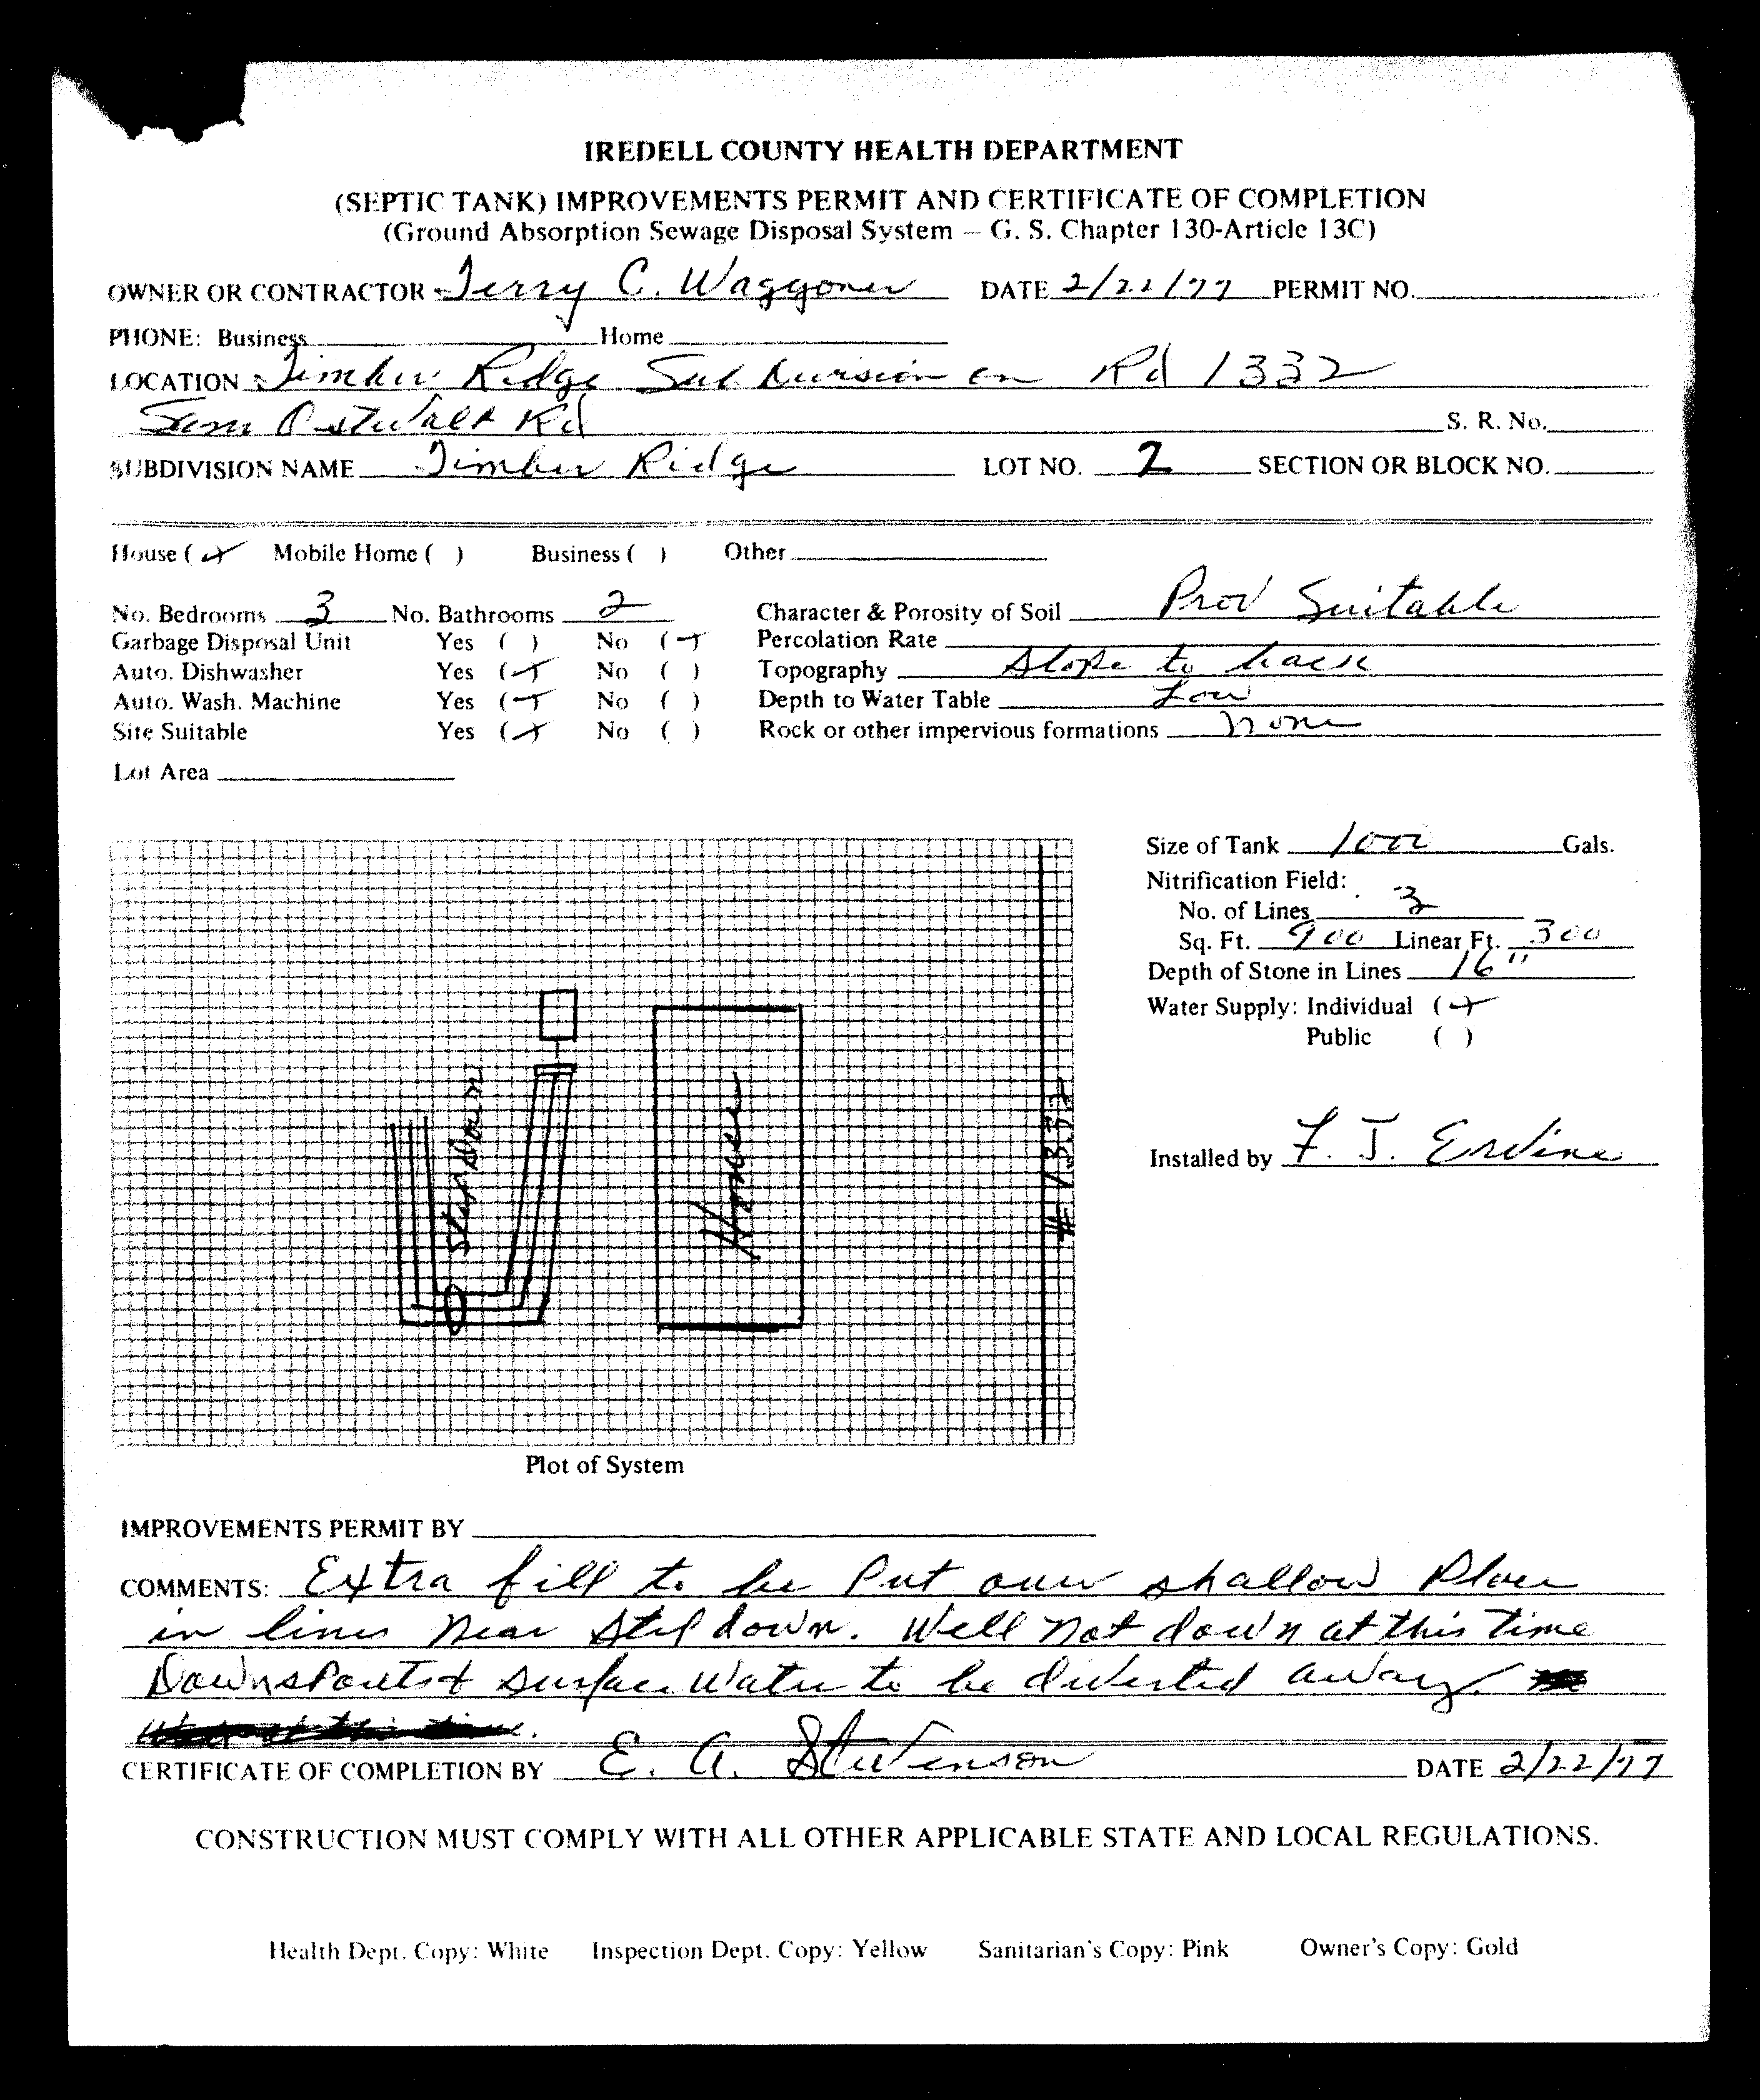 IREDELL COUNTY HEALTH DEPARTMENT
(SEPTIC TANK) IMPROVEMENTS PERMIT AND CERTIFICATE OF COMPLETION
(Ground Absorption Sewage Disposal System – G. S. Chapter 130-Article 13C)
OWNER OR CONTRACTOR Jerry C. Waggoner DATE 2/22/77 PERMIT NO.
PHONE: Business Home
LOCATION Timber Ridge Sub Division on Rd 1332
Sam Ostwalt Rd S. R. No.
SUBDIVISION NAME Timber Ridge LOT NO. 2 SECTION OR BLOCK NO.
House ( ) Mobile Home ( ) Business ( ) Other
No. Bedrooms 3 No. Bathrooms 2 Character & Porosity of Soil Prov Suitable
Garbage Disposal Unit Yes ( ) No ( ) Percolation Rate
Auto. Dishwasher Yes ( ) No ( ) Topography Slope to back
Auto. Wash. Machine Yes ( ) No ( ) Depth to Water Table Low
Site Suitable Yes ( ) No ( ) Rock or other impervious formations none
Lot Area
Size of Tank 1000 Gals.
Nitrification Field:
No. of Lines 3
Sq. Ft. 900 Linear Ft. 300
Depth of Stone in Lines 16"
Water Supply: Individual ( )
Public ( )
Installed by F. J. Ervine
Step Down
House
# 1332
Plot of System
IMPROVEMENTS PERMIT BY
COMMENTS: Extra fill to be Put over shallow Place
in lines Near Step down. Well Not down at this time
Downspouts & surface Water to be diverted away.
CERTIFICATE OF COMPLETION BY E. A. Stevenson DATE 2/22/77
CONSTRUCTION MUST COMPLY WITH ALL OTHER APPLICABLE STATE AND LOCAL REGULATIONS.
Health Dept. Copy: White Inspection Dept. Copy: Yellow Sanitarian's Copy: Pink Owner's Copy: Gold